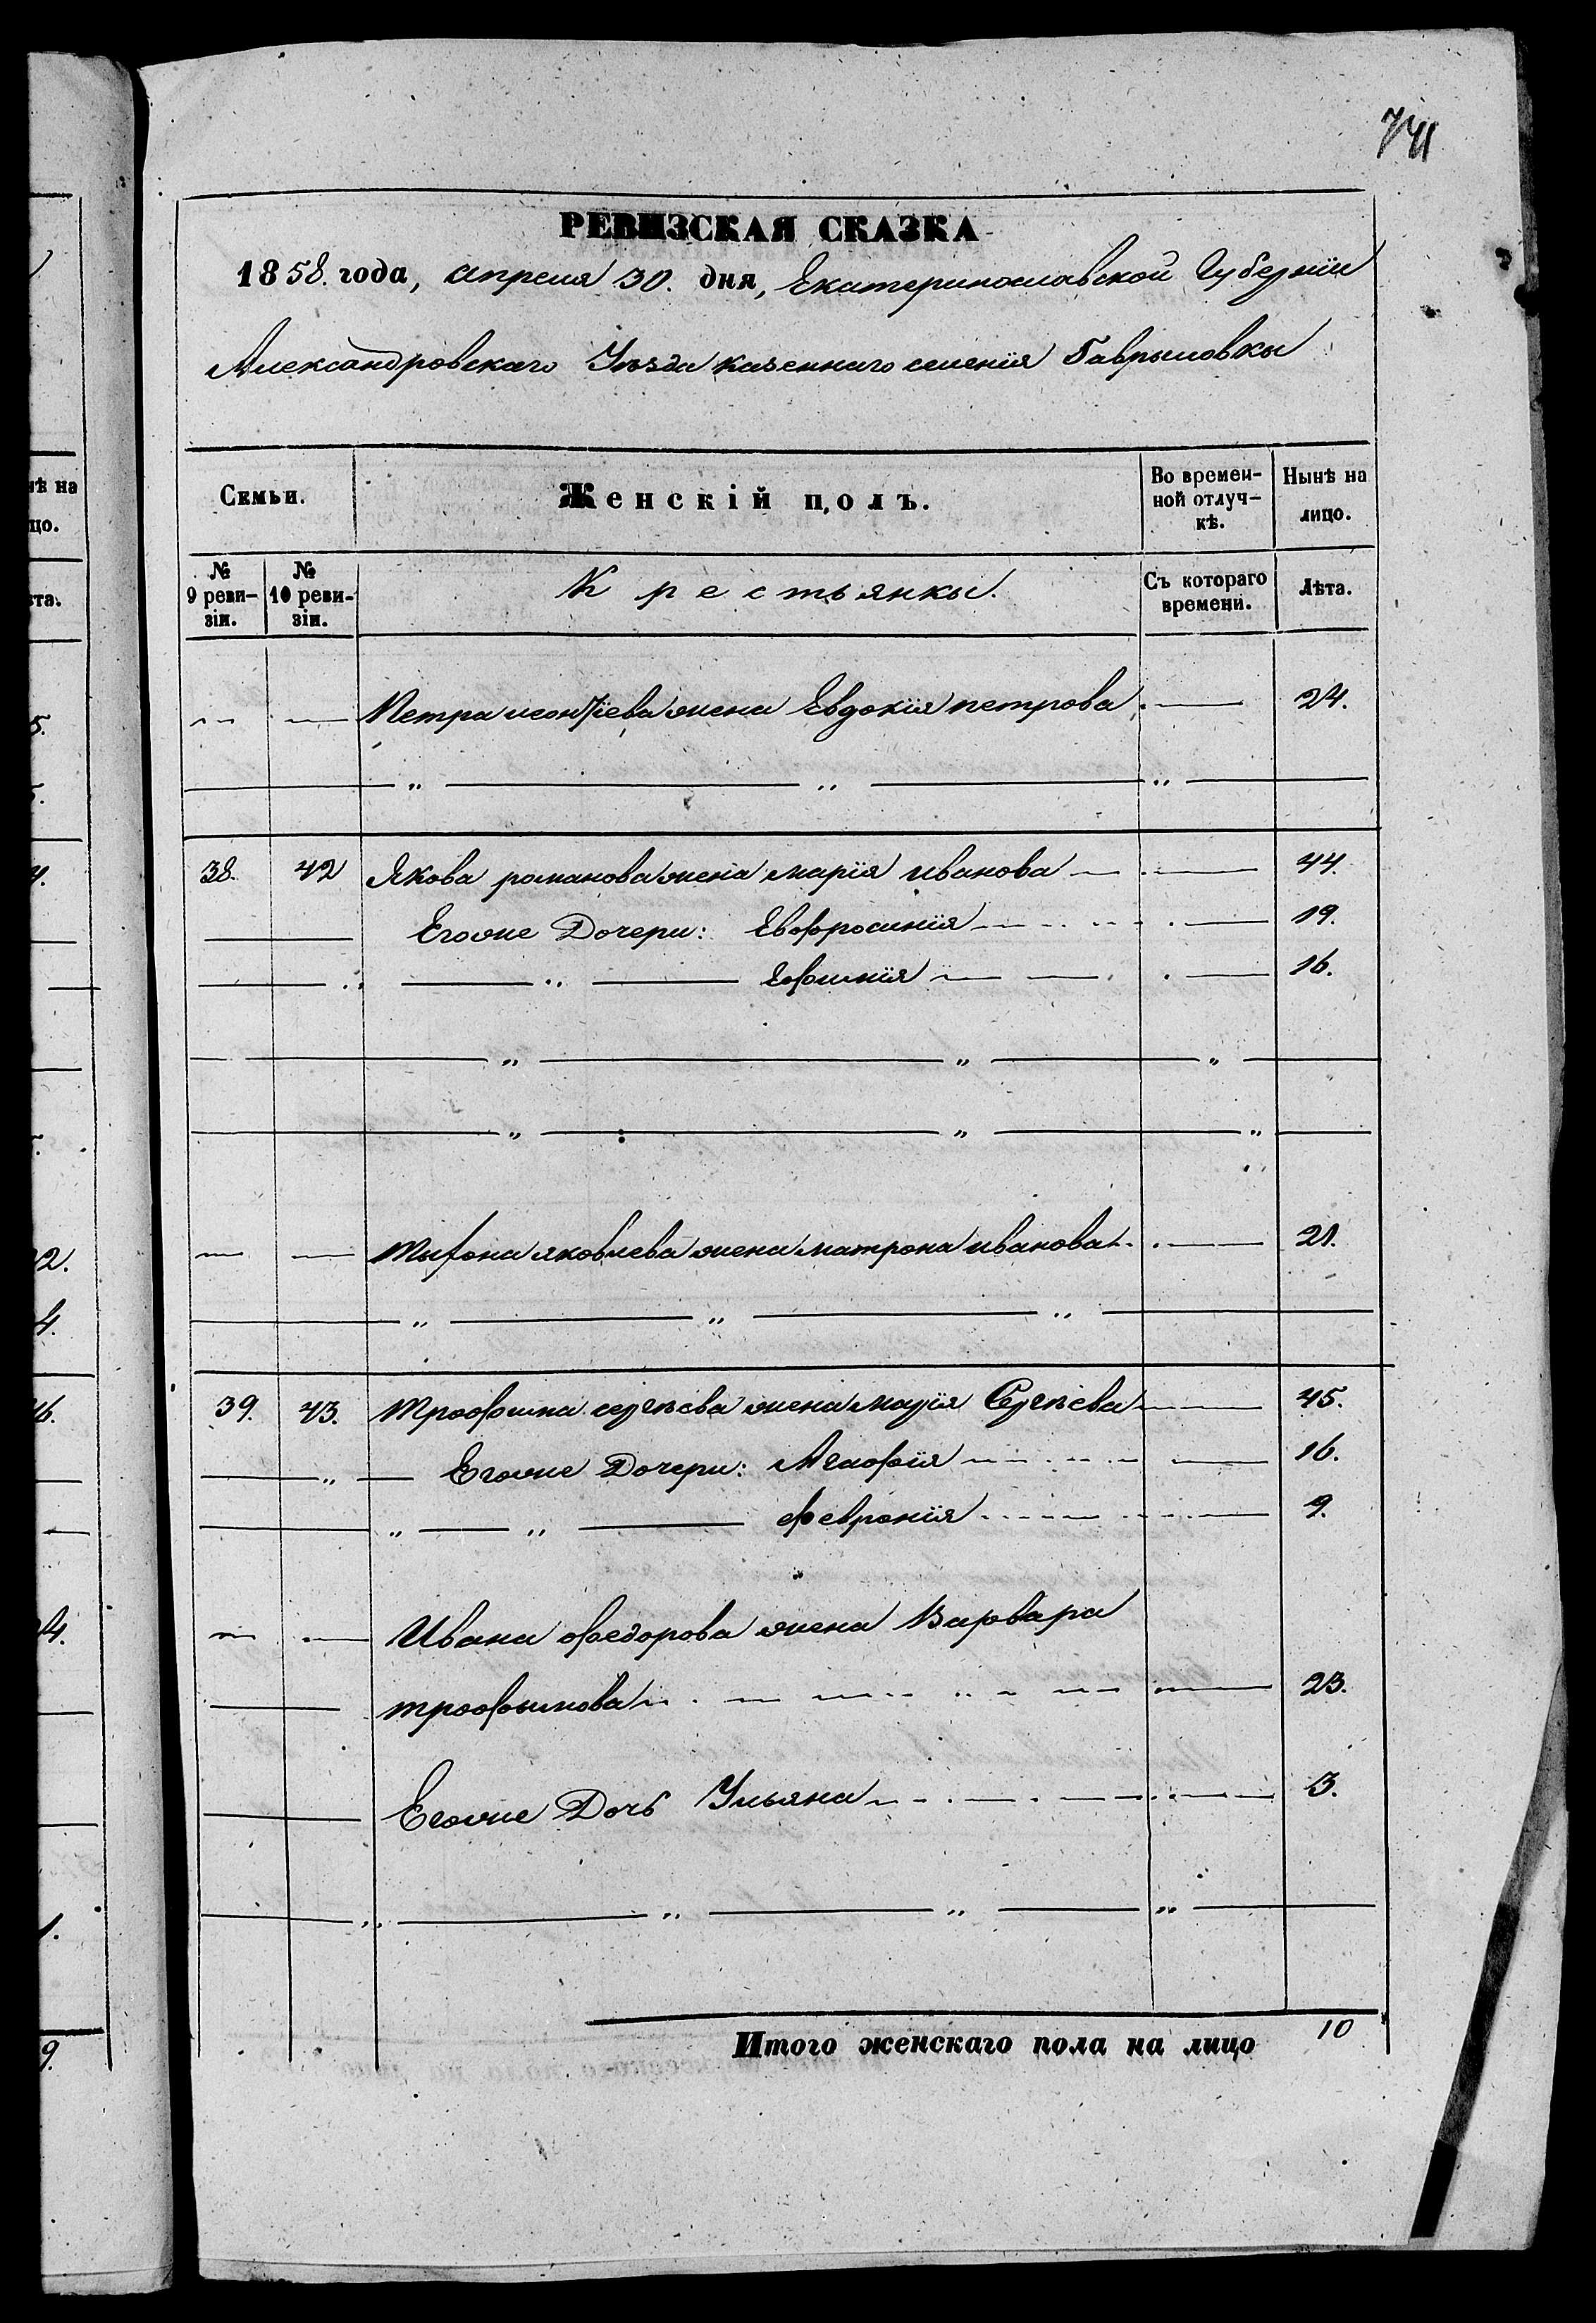 741
РЕВИЗСКАЯ СКАЗКА
1858. года, апреля 30. дня, Екатеринославской Губерніи
Александровскаго Уѣзда казеннаго селенія Гаврыловкы
Семьи. Женскій полъ. Во времен- Нынѣ на
ной отлуч- лицо.
кѣ.
№ № Крестьянкы. Съ котораго Лѣта.
9 реви- 10 реви- времени.
зіи. зіи.
Петра леонтіева жена Евдокія петрова 24.
38. 42 Якова романова жена марія иванова 44.
Егоже Дочери: Евфросинія 19.
Ефимія 16.
тыхона яковлева жена матрона иванова 21.
39. 43. трофима сергѣева жена марія Сергѣева 45.
Егоже Дочери: Агафія 16.
февронія 9.
Ивана федорова жена Варвара
трофымова 23.
Егоже Дочь Ульяна 3.
Итого женскаго пола на лицо 10